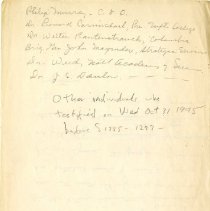 Philip Murray - C.I.O.
Dr. Leonard Carmichael, Pres. Tufts College
Dr. Walter Rautenstrauch, Columbia
Brig. Gen John Magruder, Strategic Services
Dr. Weed, Natl Academy of Science
Dr. J. L. Danton
Other individuals who
testified on Wed Oct 31 1945
before S 1285 - 1297